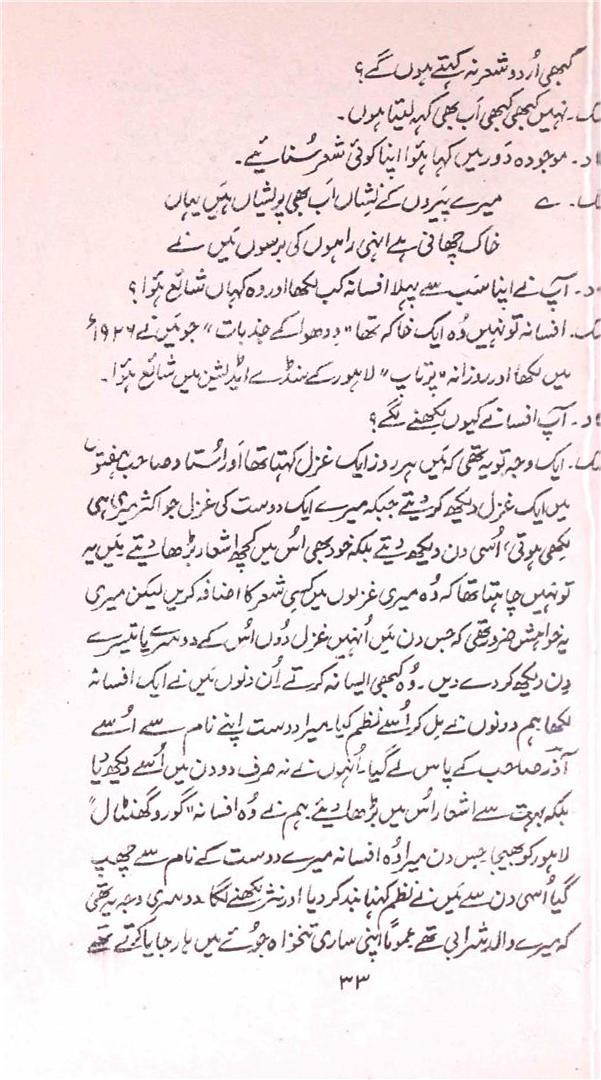 کبھی اُردو شعر نہ کہتے ہوں گے؟
ک۔ نہیں کبھی کبھی اَب بھی کہہ لیتا ہوں۔
د۔ موجودہ دَور میں کہا ہُوا اپنا کوئی شعر سُنائیے۔
ک۔ ے میرے پَیروں کے نِشاں اَب بھی پریشاں ہَیں یہاں
خاک چھانی ہے انہی راہوں کی برسوں مَیں نے
د۔ آپ نے اپنا سَب سے پہلا افسانہ کب لکھا اور وہ کہاں شائع ہُوا؟
ک۔ افسانہ تو نہیں وُہ ایک خاکہ تھا "وِدھوا کے جذبات" جو مَیں نے ۱۹۲۶ء
میں لکھا اور روزانہ "پرتاپ" لاہور کے سنڈے ایڈیشن میں شائع ہُوا۔
د۔ آپ افسانے کیوں لِکھنے لگے؟
ک۔ ایک وجہ تو یہ تھی کہ مَیں ہر روز ایک غزل کہتا تھا اَور اُستاد صاحب ہفتوں
میں ایک غزل دیکھ کر دیتے جبکہ میرے ایک دوست کی غزل جو اکثر میری ہی
لِکھی ہوتی، اُسی دن دیکھ دیتے بلکہ خود بھی اُس میں کچھ اشعار بڑھا دیتے مَیں یہ
تو نہیں چاہتا تھا کہ وُہ میری غزلوں میں کِسی شعر کا اضافہ کریں لیکن میری
یہ خواہش ضرور تھی کہ جس دن مَیں اُنہیں غزل دُوں اُس کے دوسرے یا تیسرے
دِن دیکھ کر دے دیں۔ وُہ کبھی ایسا نہ کرتے اُن دنوں مَیں نے ایک افسانہ
لکھا ہم دونوں نے مِل کر اُسے نظم کیا۔ میرا دوست اپنے نام سے اُسے
آذر صاحب کے پاس لے گیا۔ اُنہوں نے نہ صرف دو دن میں اُسے دیکھ دیا
بلکہ بہت سے اشعار اُس میں بڑھا دِیئے۔ ہم نے وُہ افسانہ "گورو گھنٹال"
لاہور کو بھیجا جِس دن میرا وُہ افسانہ میرے دوست کے نام سے چھپ
گیا اُسی دن سے مَیں نے نظم کہنا بند کر دیا اور نثر لِکھنے لگا۔ دوسری وجہ یہ تھی
کہ میرے والد شرابی تھے عموماً اپنی ساری تنخواہ جُوئے میں ہار جایا کرتے تھے
۳۳